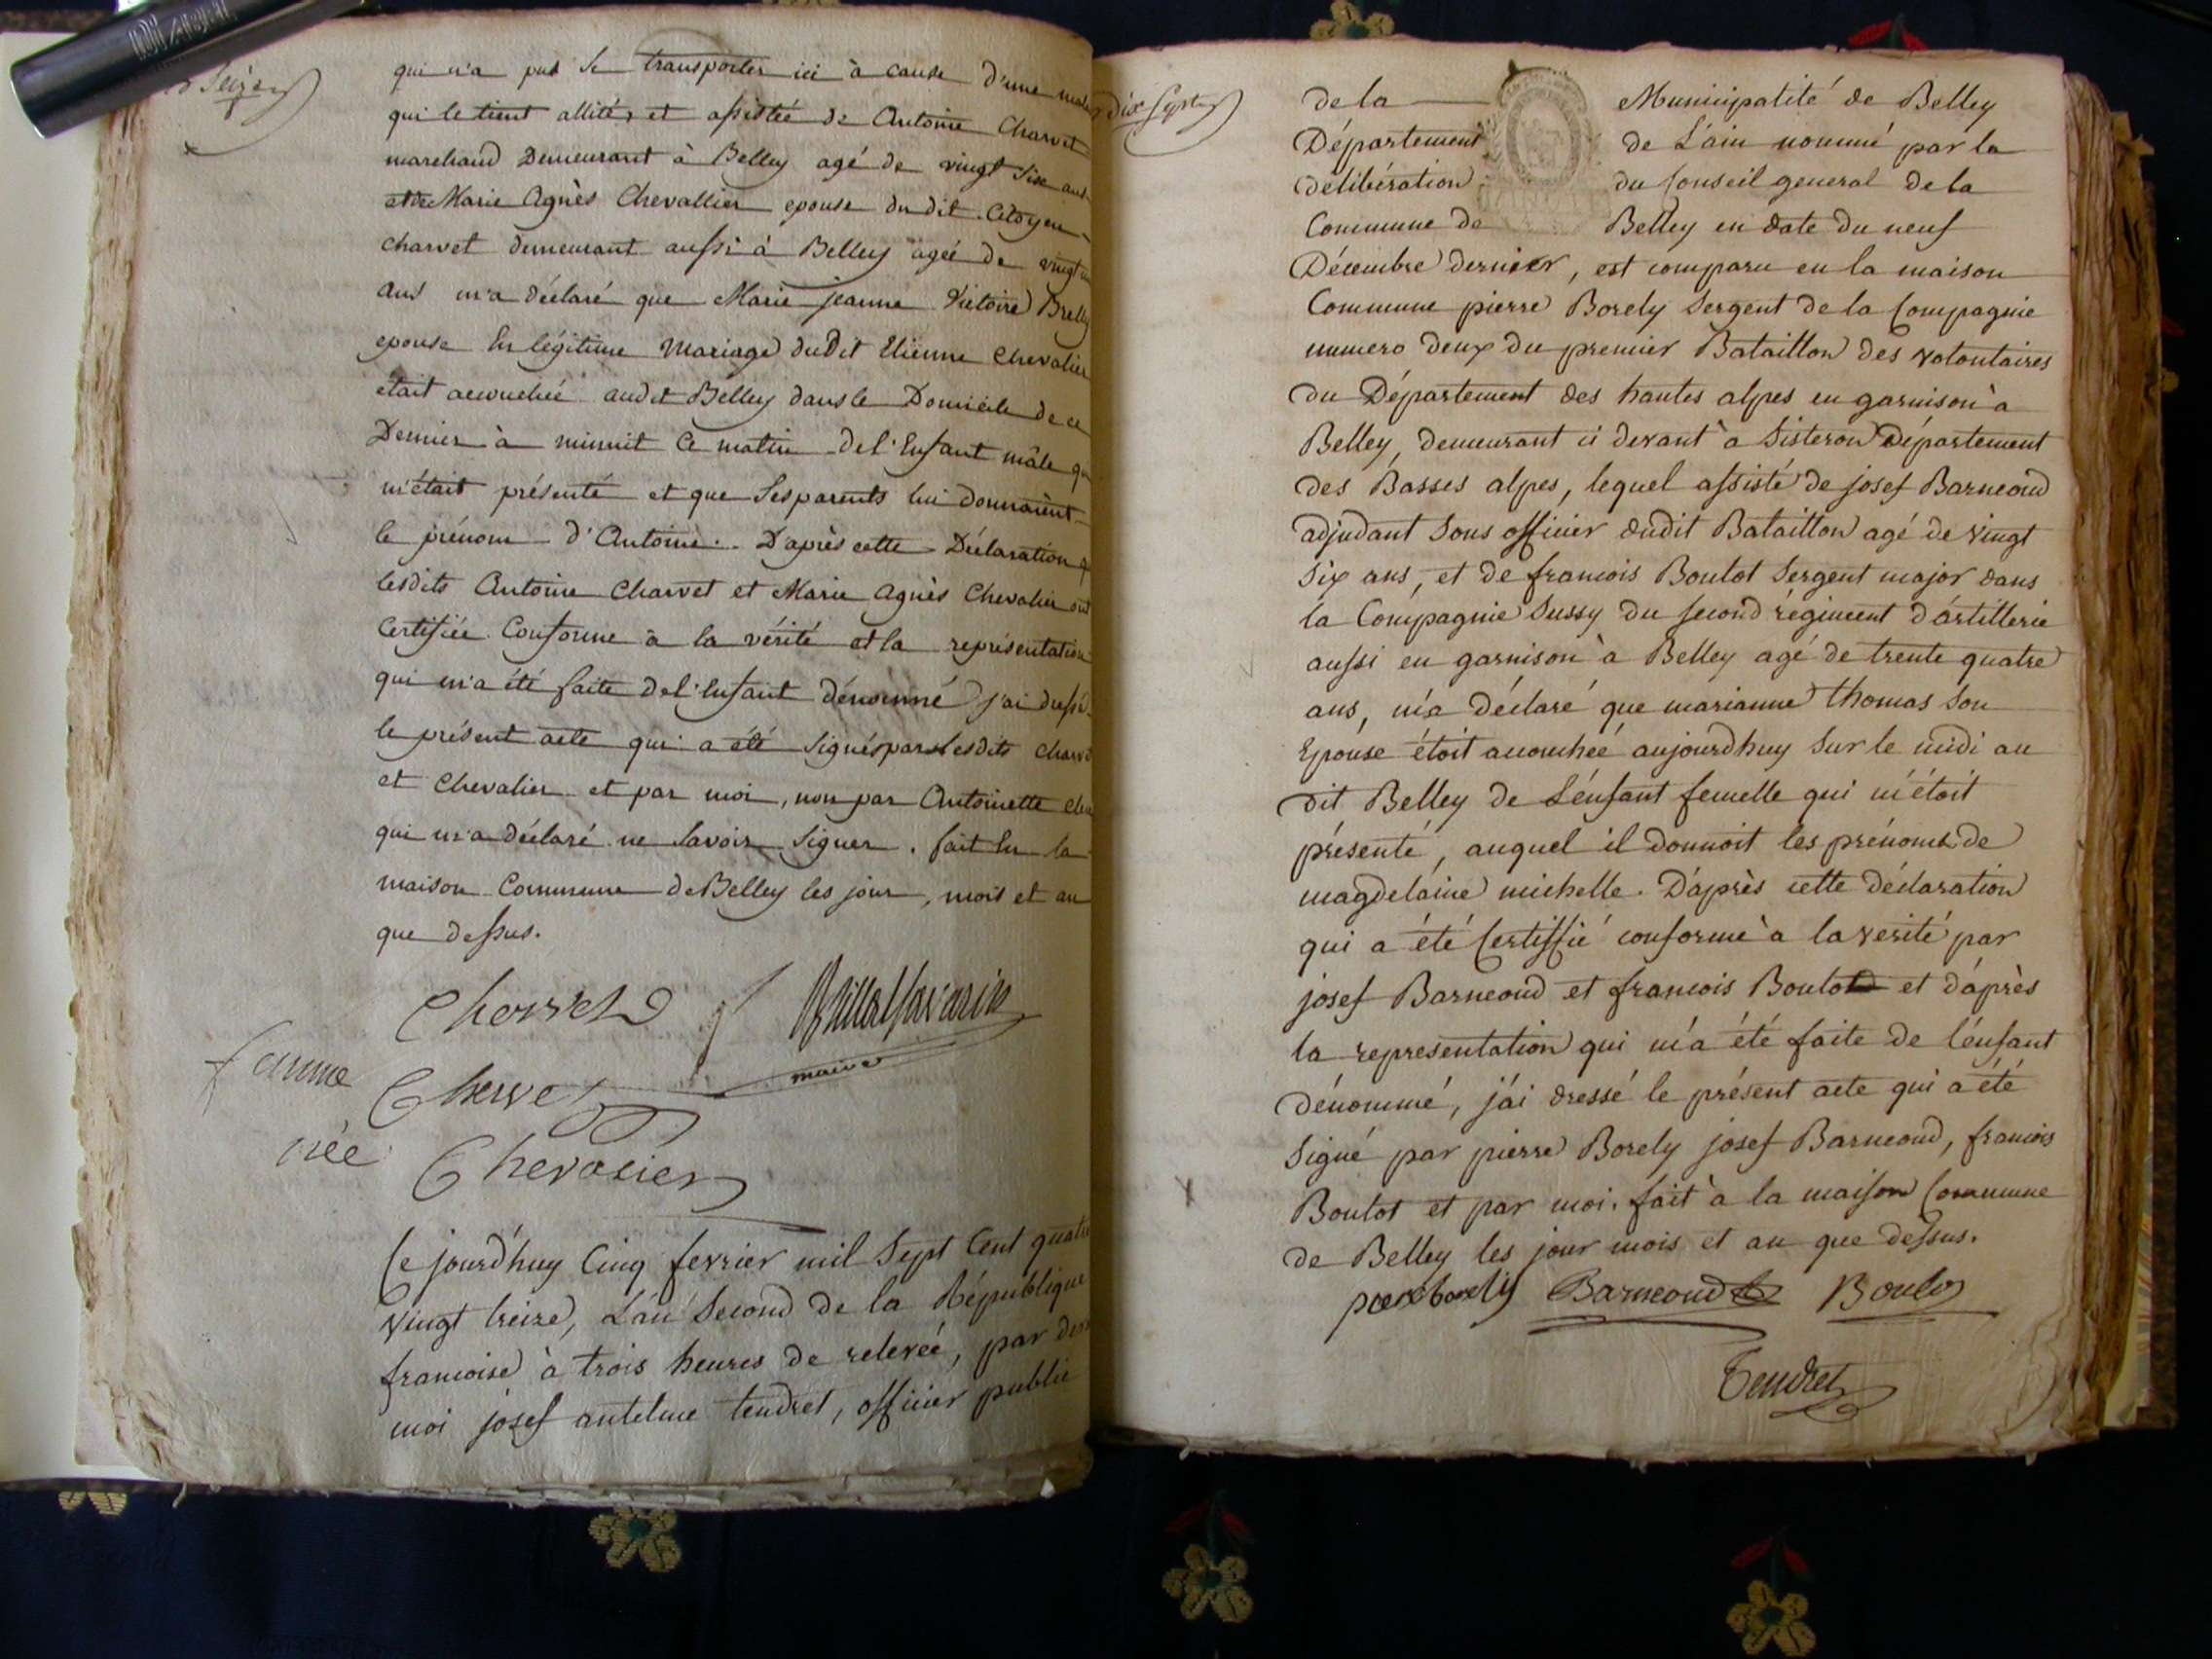 Seize
qui n'a pas se transporter ici à cause d'une
qui le tient allité, et assistée de Antoine Charvet
marchand Demeurant à Belley agé de vingt six ans
et de Marie Agnès Chevallier epouse du dit Citoyen
Charvet demeurant aussi à Belley agée de vingt
ans m'a déclaré que Marie jeanne Victoire
epouse En légitime Mariage dudit Etienne Chevalier
etait accouchée audit Belley dans le Domicile de ce
Dernier à minuit Ce matin de l'Enfant mâle
m'était présenté et que Ses parents lui donnaient
le prénom d'Antoine. D'après cette Déclaration
lesdits Antoine Charvet et Marie Agnès Chevalier ont
Certifiée Conforme à la vérité et la représentation
qui m'a été faite de l'Enfant dénommé j'ai dressé
le présent acte qui a été Signés par lesdits
et Chevalier et par moi, non par Antoinette
qui m'a déclaré ne Savoir Signer. fait En la
maison Commune de Belley les jour, mois et an
que dessus.
Chervet
maire
famme Chervet
née Chevalier
Ce jourd'huy Cinq fevrier mil Sept Cent quatre
Vingt treize, L'an Second de la République
francoise à trois heures de relevée, par
moi josef antelme tendret, officier public
Dix Sept
de la Municipalité de Belley
Département de L'ain nommé par la
délibération du Conseil general de la
Commune de Belley en date du neuf
Décembre dernier, est comparu en la maison
Commune pierre Borely Sergent de la Compagnie
numero deux du premier Bataillon des volontaires
du Département des hautes alpes en garnison à
Belley, demeurant ci devant à Sisteron Département
des Basses alpes, lequel assisté de josef Barneoud
adjudant Sous officier dudit Bataillon agé de vingt
Six ans, et de francois Boulot Sergent major dans
la Compagnie Sussy du Second régiment d'artillerie
aussi en garnison à Belley agé de trente quatre
ans, m'a déclaré que marianne thomas Son
Epouse étoit accouchée aujourdhuy Sur le midi au
dit Belley de L'énfant femelle qui m'étoit
présenté, auquel il donnoit les prénoms de
magdelaine michelle. D'après cette déclaration
qui a été Certiffié conforme à la verité par
josef Barneoud et francois Boulot et d'après
la representation qui m'a été faite de l'énfant
dénommé, j'ai dressé le présent acte qui a été
Signé par pierre Borely josef Barneoud, francois
Boulot et par moi. fait à la maison Commune
de Belley les jour mois et an que dessus.
Barneoud Boulo
Tendret